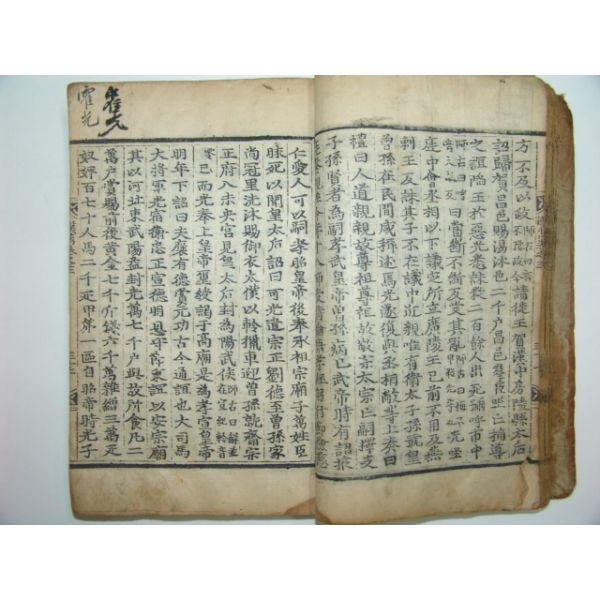 方不及以政請徙王賀漢中房陵縣太后
詔歸賀昌邑賜湯沐邑二千户昌邑羣臣坐亡輔導
之誼陷王於惡光悉誅殺二百餘人出死號呼市中
曰當斷不斷反受其亂
庭中會丞相以下議定所立廣陵王已前不用及燕
剌王反誅其子不在議中近親唯有衛太子
孫在民間咸稱述焉光遂復與丞相敞等上奏曰
禮曰人道親親故尊祖尊祖故敬宗太宗亡嗣擇支
子孫賢者為嗣孝武皇帝曾孫病已武帝時有詔掖
霍光
霍光
仁愛人可以嗣孝昭皇帝後奉承祖宗廟子萬姓臣
昧死以聞皇太后詔曰可光遣宗正劉德至曾孫家
尚冠里洗沐賜御衣太僕以軨獵車迎曾孫就齋宗
正府入未央宮見皇太后封為陽武侯師古曰解並在宣紀軨音
已而光奉上皇帝璽綬謁于高廟是為孝宣皇帝
明年下詔曰夫襃有德賞元功古今通誼也大司馬
大將軍光宿衛忠正宣德明恩守節秉誼以安宗廟
其以河北東武陽益封光萬七千户與故所食凡二
萬户賞賜前後黃金七千斤錢六千萬雜繒三萬疋
奴婢百七十人馬二千疋甲第一區自昭帝時光子